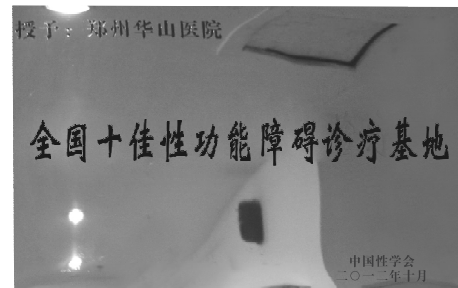 授予：郑州华山医院
全国十佳性功能障碍诊疗基地
中国性学会
二〇一二年十月